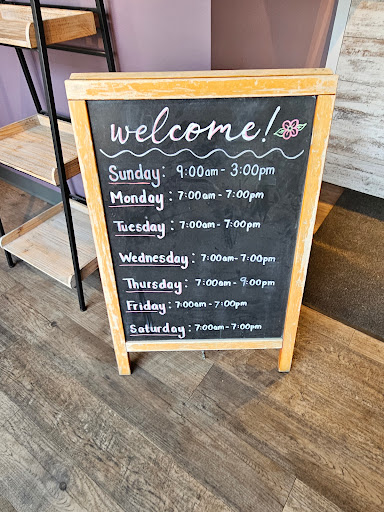 welcome!
Sunday: 9:00am - 3:00pm
Monday: 7:00am - 7:00pm
Tuesday: 7:00am - 7:00pm
Wednesday: 7:00am - 7:00pm
Thursday: 7:00am - 9:00pm
Friday: 7:00am - 7:00pm
Saturday: 7:00am - 7:00pm